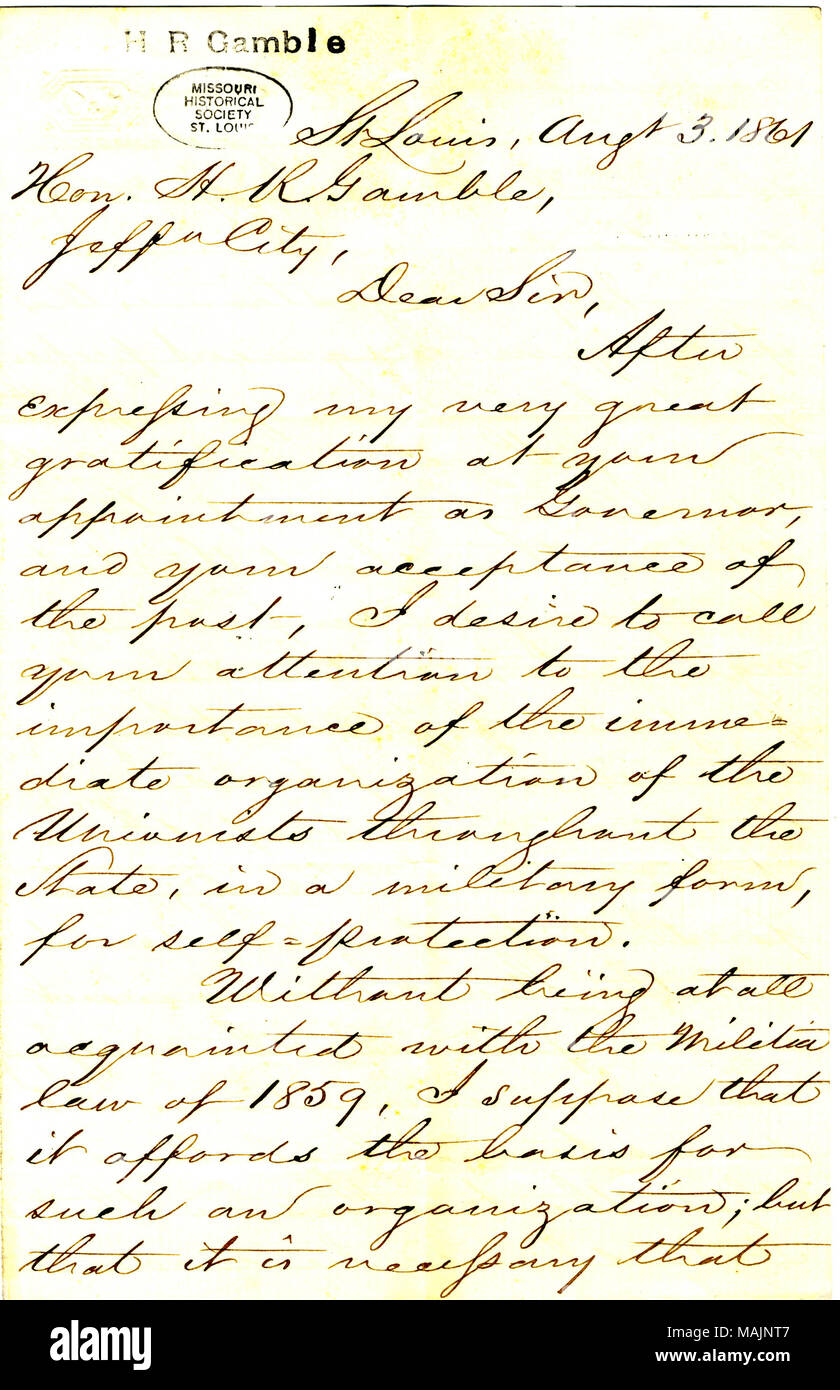 H R Gamble
MISSOURI
HISTORICAL
SOCIETY
ST. LOUIS
St. Louis, Augt 3. 1861
Hon. H. R. Gamble,
Jeffn City,
Dear Sir,
After
expressing my very great
gratification at your
appointment as Governor,
and your acceptance of
the post, I desire to call
your attention to the
importance of the imme=
diate organization of the
Unionists throughout the
State, in a military form,
for self=protection.
Without being at all
acquainted with the Militia
law of 1859, I suppose that
it affords the basis for
such an organization; but
that it is necessary that
alamy
Image ID: MAJNT7
www.alamy.com